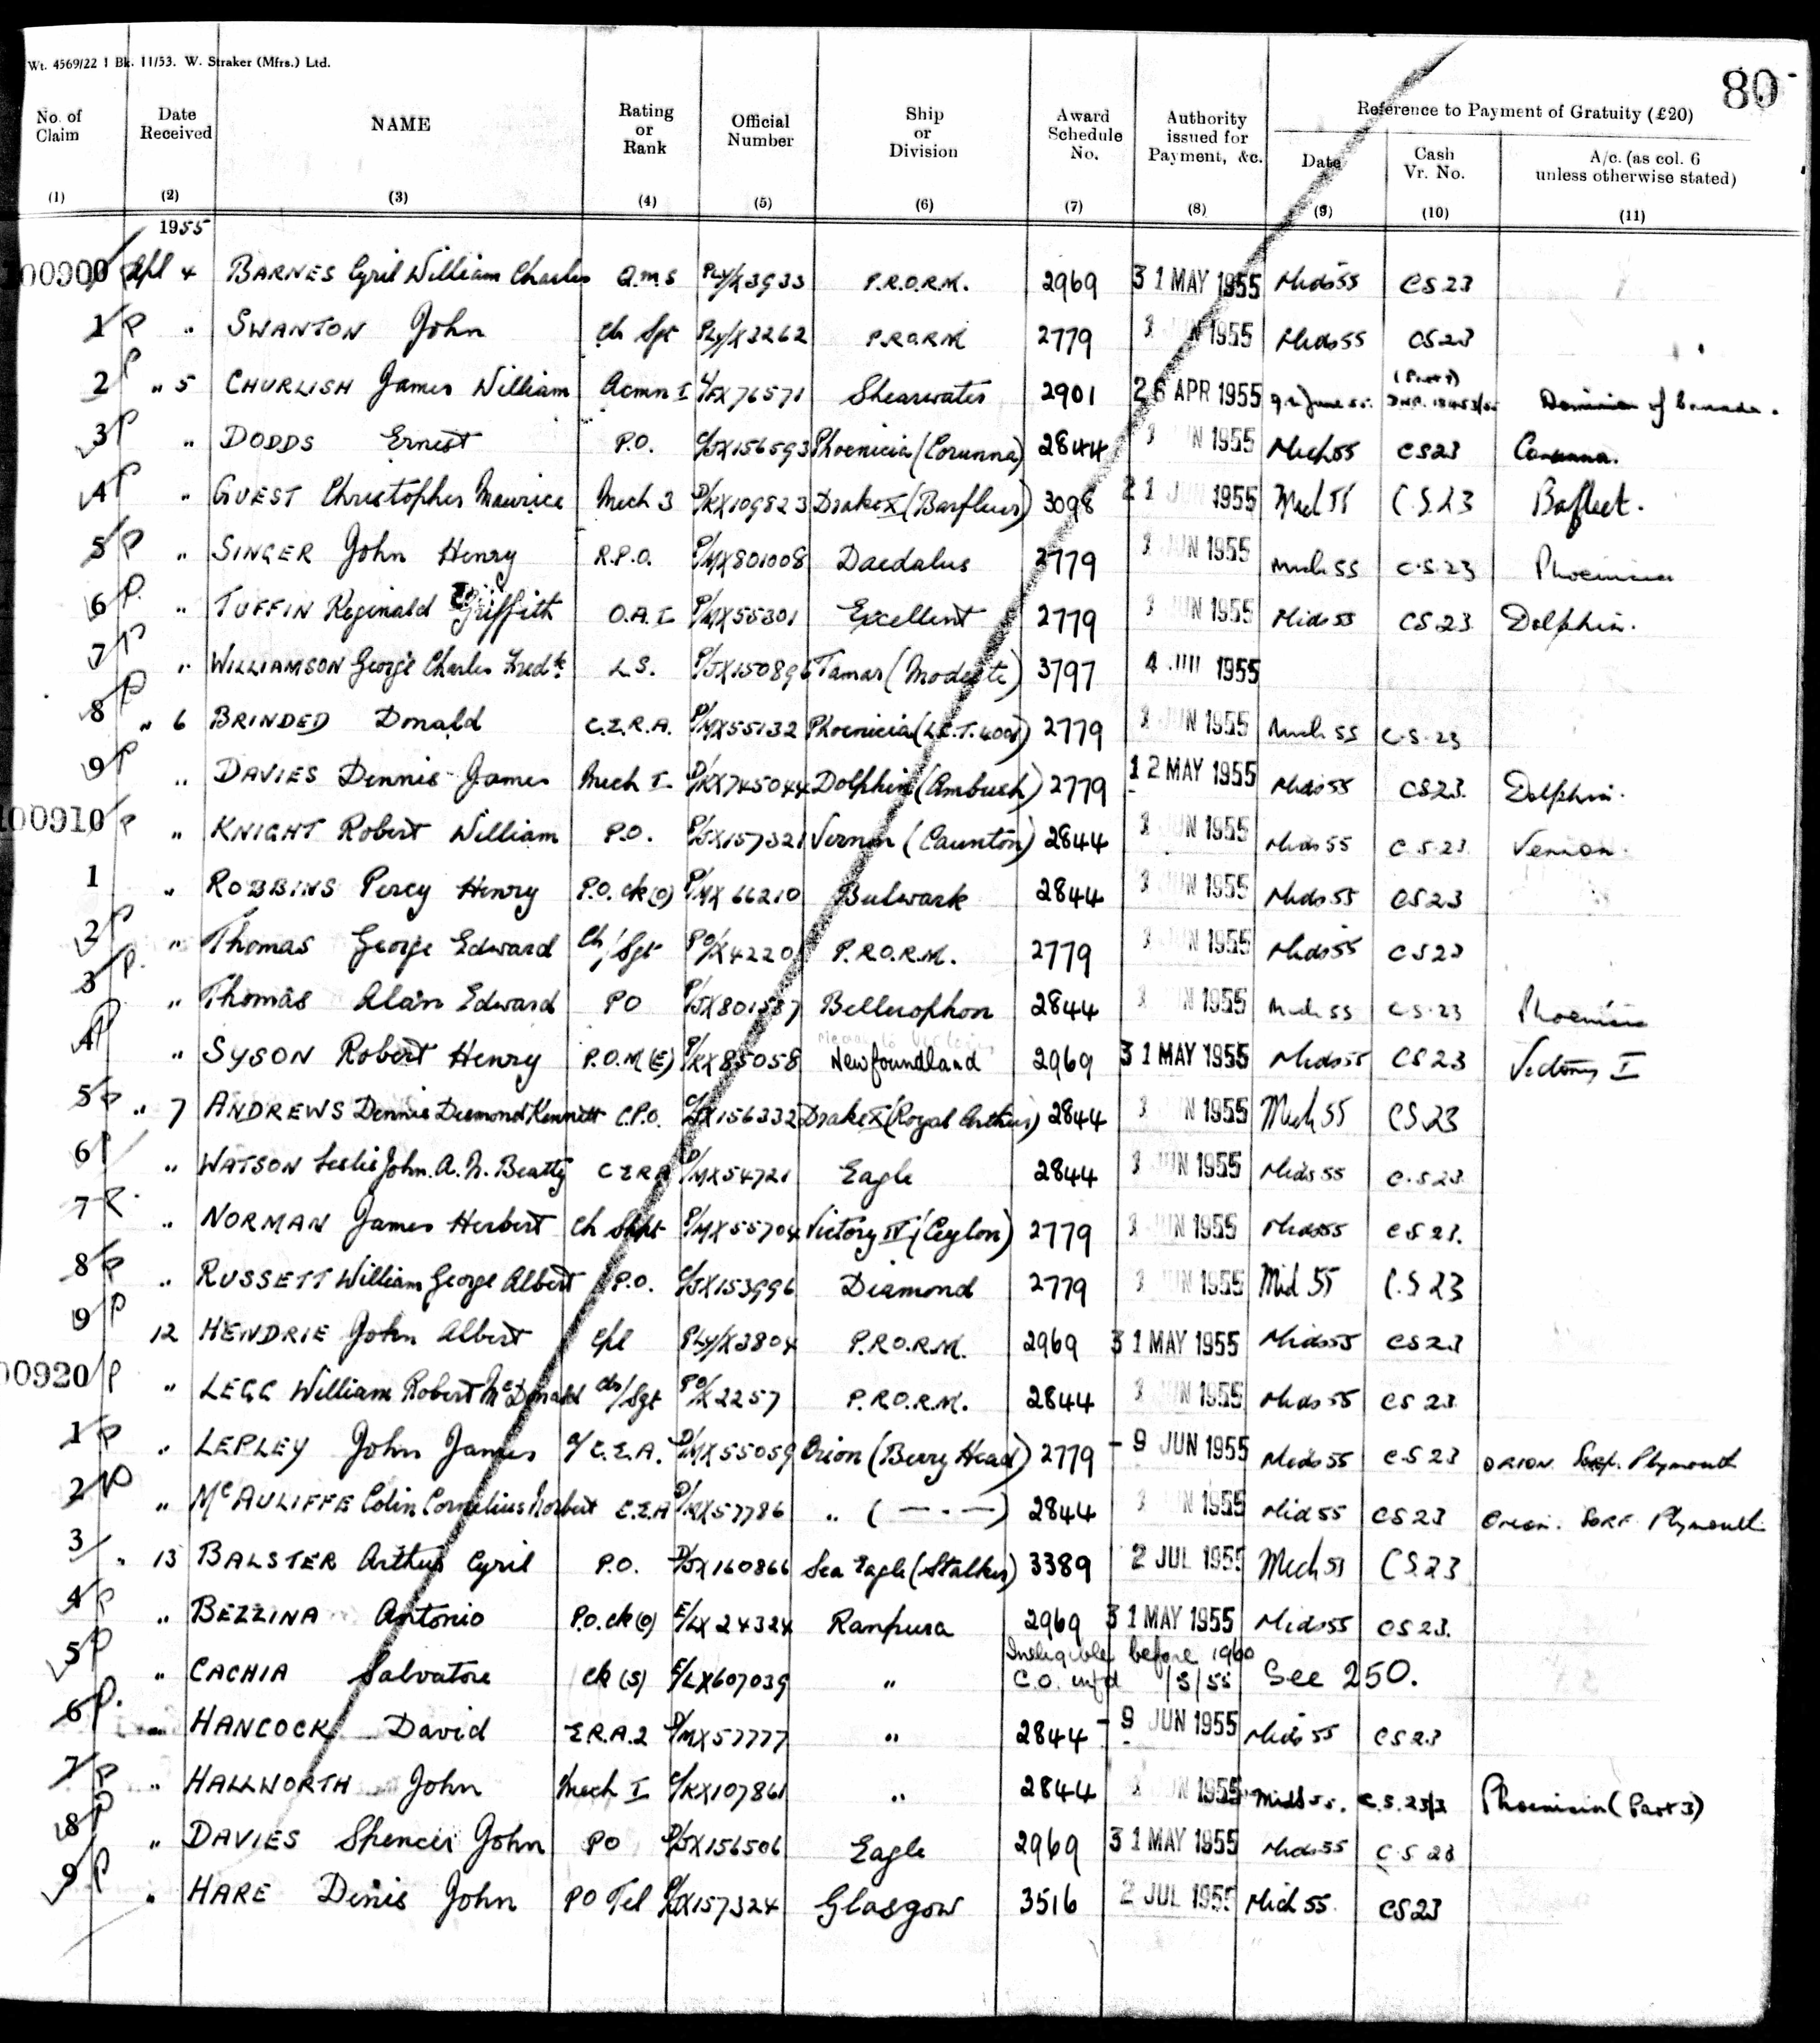 80
Wt. 4569/22 1 Bk. 11/53. W. Straker (Mfrs.) Ltd.
No. of Claim Date Received NAME Rating or Rank Official Number Ship or Division Award Schedule No. Authority issued for Payment, &c. Reference to Payment of Gratuity (£20)
Date Cash Vr. No. A/c. (as col. 6 unless otherwise stated)
(1) (2) (3) (4) (5) (6) (7) (8) (9) (10) (11)
1955
00900 Apl 4 BARNES Cyril William Charles Q.M.S PLY/X3933 P.R.O.R.M. 2969 31 MAY 1955 Mids 55 CS 23
1 P " SWANTON John Ch Sgt PLY/X3262 P.R.O.R.M 2779 JUN 1955 Mids 55 CS 23
2 P " 5 CHURLISH James William Acmn I L/FX 76571 Shearwater 2901 26 APR 1955 Dominion of Canada.
3 P " DODDS Ernest P.O. C/JX156593 Phoenicia (Corunna) 2844 JUN 1955 Mids 55 CS23 Corunna.
4 P " GUEST Christopher Maurice Mech 3 D/KX109823 Drake X (Barfleur) 3098 21 JUN 1955 Mids 55 C.S.23 Barfleet.
5 P " SINGER John Henry R.P.O. P/MX801008 Daedalus 2779 JUN 1955 Mids 55 C.S.23 Phoenicia
6 P. " TUFFIN Reginald Griffith O.A. I P/MX55301 Excellent 2779 JUN 1955 Mids 55 CS 23 Dolphin.
7 P " WILLIAMSON George Charles Fredk L.S. P/JX150896 Tamar (Modeste) 3797 4 JUL 1955
8 P " 6 BRINDED Donald C.E.R.A. P/MX55132 Phoenicia (L.C.T. 4001) 2779 JUN 1955 Mids 55 C.S.23
9 P " DAVIES Dennis James Mech I P/KX745044 Dolphin (Ambush) 2779 12 MAY 1955 Mids 55 CS23. Dolphin.
00910 P " KNIGHT Robert William P.O. P/JX157321 Vernon (Caunton) 2844 JUN 1955 Mids 55 C.S.23. Vernon.
1 " ROBBINS Percy Henry P.O. Ck (O) P/MX 66210 Bulwark 2844 JUN 1955 Mids 55 CS23
2 P " Thomas George Edward Ch/Sgt PO/X4220 P.R.O.R.M. 2779 JUN 1955 Mids 55 CS 23
3 P. " Thomas Alan Edward PO P/JX801587 Bellerophon 2844 JUN 1955 Mids 55 C.S.23 Phoenicia
4 P " SYSON Robert Henry P.O.M (E) P/KX85058 Newfoundland 2969 31 MAY 1955 Mids 55 CS 23 Victory I
5 P " 7 ANDREWS Dennis Desmond Kenneth C.P.O. C/JX156332 Drake X (Royal Arthur) 2844 JUN 1955 Mids 55 CS.23
6 P " WATSON Leslie John. A. N. Beatty C E R A P/MX54721 Eagle 2844 JUN 1955 Mids 55 C.S.23.
7 P. " NORMAN James Herbert Ch Shpt P/MX55704 Victory IV (Ceylon) 2779 JUN 1955 Mids 55 CS 23.
8 P " RUSSETT William George Albert P.O. C/JX153996 Diamond 2779 JUN 1955 Mid 55 C.S 23
9 P 12 HENDRIE John Albert Cpl PLY/X3804 P.R.O.R.M. 2969 31 MAY 1955 Mids 55 CS23
00920 P " LEGG William Robert McDonald Ch/Sgt PO/X2257 P.R.O.R.M. 2844 JUN 1955 Mids 55 CS 23.
1 P " LEPLEY John James a/ C.E.A. D/MX55059 Orion (Berry Head) 2779 - 9 JUN 1955 Mids 55 C.S 23 ORION. Plymouth
2 P " McAULIFFE Colin Cornelius Norbert C.E.A D/MX57786 " ( — . — ) 2844 JUN 1955 Mids 55 CS 23 Orion. Plymouth
3 " 13 BALSTER Arthur Cyril P.O. D/JX160866 Sea Eagle (Stalker) 3389 2 JUL 1955 Mids 55 CS.23
4 P " BEZZINA Antonio P.O. Ck (O) E/LX 24324 Ranpura 2969 31 MAY 1955 Mids 55 CS 23.
5 P " CACHIA Salvatore Ck (S) E/LX607039 " Ineligible before 1960 C.O. inf'd /5/55 See 250.
6 P. " HANCOCK David E.R.A.2 D/MX57777 " 2844 - 9 JUN 1955 Mids 55 CS 23
7 P " HALLWORTH John Mech I C/KX107861 " 2844 JUN 1955 Mids 55. C.S. 23/3 Phoenicia (Part 3)
8 P " DAVIES Spencer John PO D/JX156506 Eagle 2969 31 MAY 1955 Mids 55 C.S 23
9 P " HARE Denis John PO Tel P/JX157324 Glasgow 3516 2 JUL 1955 Mids 55. CS 23